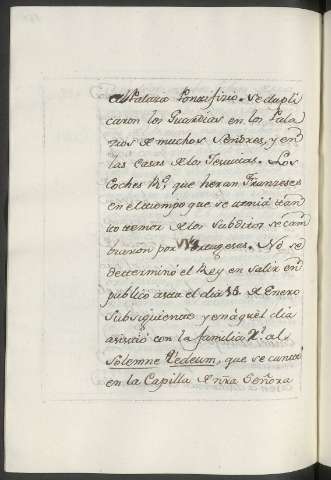 al Palazio Pontifizio. Se dupli
caron los Guardias en los Pala
zios de muchos Señores, y en
las Casas de los Jesuitas. Los
Coches Rs. que heran Franzeses
en el tiempo que se tenia tan
to temor de los Subditos se cam
biaron por Portugeses. No se
determinó el Rey en salir en
publico asta el dia de Enero
Subsiguiente y en aquel dia
asistió con la familia Rl. al
Solemne Tedeum, que se cantó
en la Capilla de nra Señora